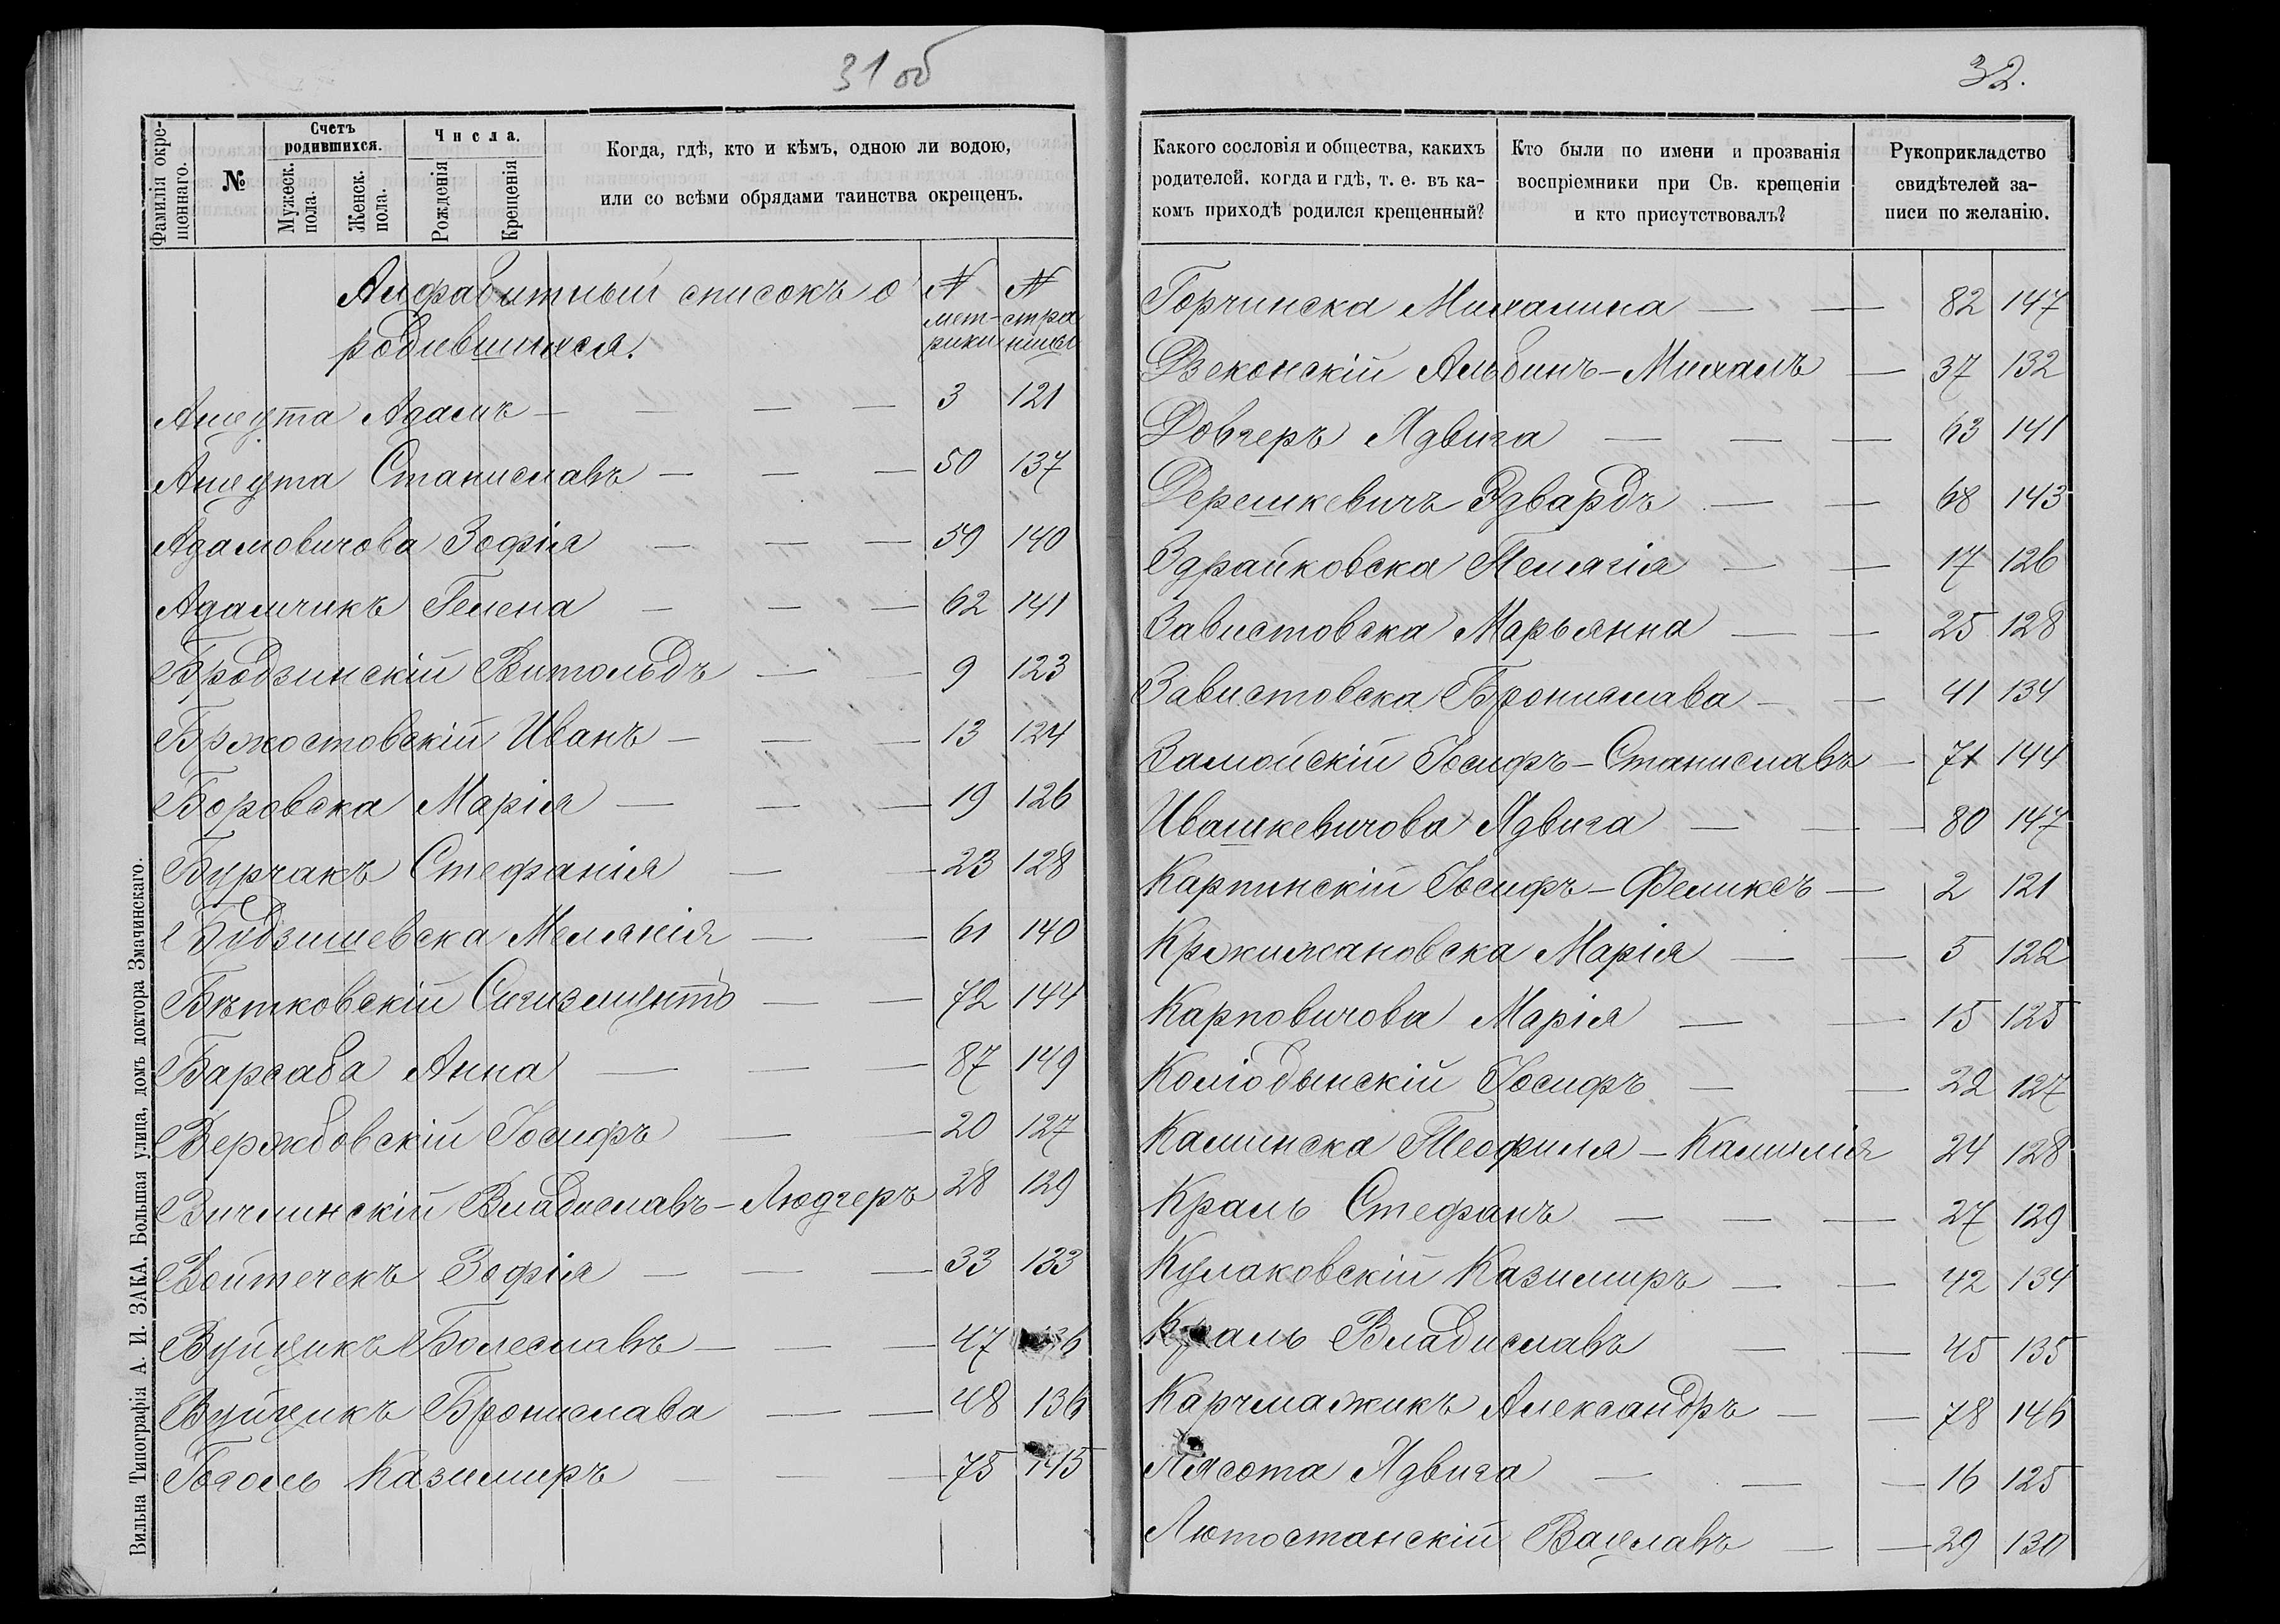 31 об
Фамилія окре-
щеннаго.
№
Счетъ
родившихся.
Мужеск.
пола.
Женск.
пола.
Числа.
Рожденія
Крещенія
Когда, гдѣ, кто и кѣмъ, одною ли водою,
или со всѣми обрядами таинства окрещенъ.
Алфавитный списокъ о
родившихся.
N
мет-
рики
N
стра
ницы
Ашеута Адамъ — — — — 3 121
Ашеута Станиславъ — — — 50 137
Адамовичова Зофія — — — 59 140
Адамчикъ Гелена — — — 62 141
Бродзинскій Витольдъ — — 9 123
Бржостовскій Иванъ — — — 13 124
Боровска Марія — — — 19 126
Бурчакъ Стефанія — — 23 128
Будзишевска Меланія — — 61 140
Бѣтковскій Сигизмунтъ — — 72 144
Барсаба Анна — — — 87 149
Вержбовскій Іосифъ — — 20 127
Вичлинскій Владиславъ-Людгеръ 28 129
Войтечекъ Зофія — — — 33 133
Вуйцикъ Болеславъ — — — 47 136
Вуйцикъ Бронислава — — 48 136
Гоголь Казимиръ — — 75 145
Вильна Типографія А. И. ЗАКА, Большая улица, домъ доктора Змачинскаго.
32.
Какого сословія и общества, какихъ
родителей, когда и гдѣ, т. е. въ ка-
комъ приходѣ родился крещенный?
Кто были по имени и прозванія
воспріемники при Св. крещеніи
и кто присутствовалъ?
Рукоприкладство
свидѣтелей за-
писи по желанію.
Горчинска Михалина — — 82 147
Дзеконскій Альбинъ-Михалъ — 37 132
Довгеръ Ядвига — — — 63 141
Дерешкевичъ Эдвардъ — — 68 143
Здрайковска Пелягія — — 17 126
Завистовска Марьянна — — 25 128
Завистовска Бронислава — — 41 134
Замойскій Іосифъ-Станиславъ — 71 144
Ивашкевичова Ядвига — — 80 147
Карпинскій Іосифъ-Феликсъ — 2 121
Кржижановска Марія — — 5 122
Карповичова Марія — — 15 125
Колодынскій Іосифъ — — 22 127
Калинска Теофиля-Камилія 24 128
Краль Стефанъ — — — 27 129
Кулаковскій Казимиръ — — 42 134
Краль Владиславъ — — 45 135
Карчмажикъ Александръ — — 78 146
Лясота Ядвига — — — 16 125
Лютостанскій Вацлавъ — — 29 130